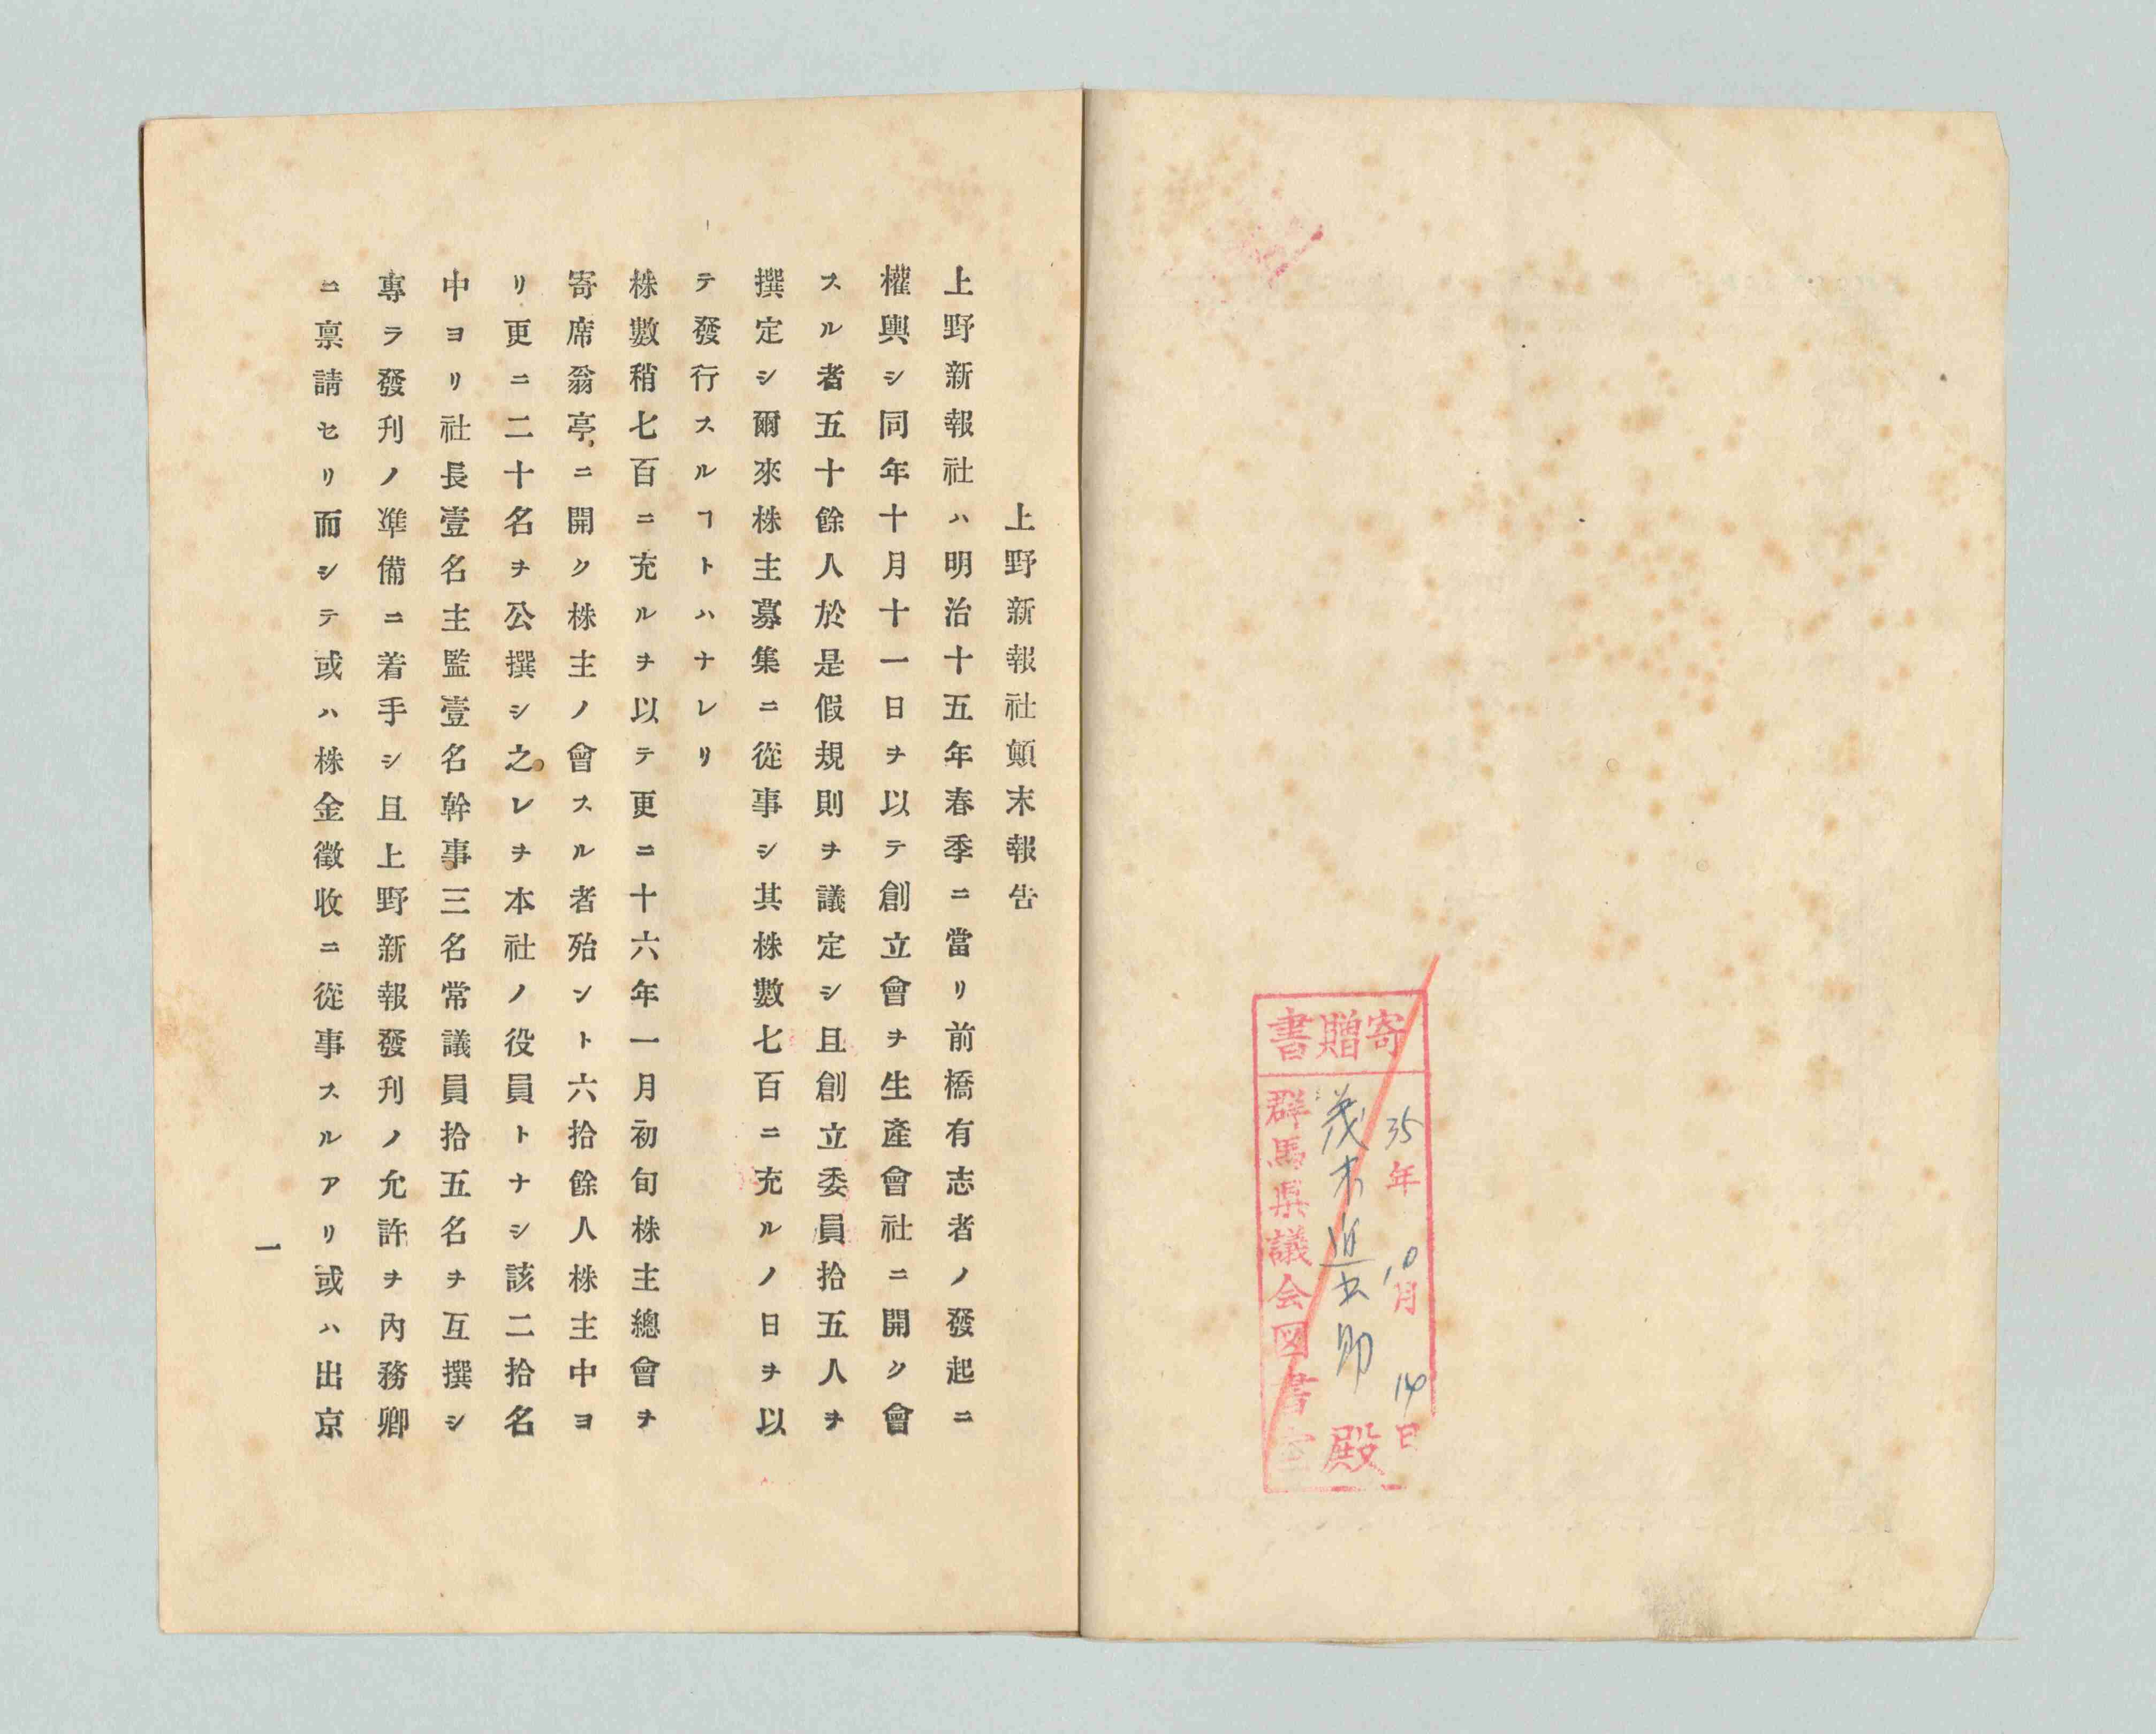 寄贈書
35年10月14日
茂木
殿
群馬県議会図書室
上野新報社顛末報告
上野新報社ハ明治十五年春季ニ當リ前橋有志者ノ發起ニ
權輿シ同年十月十一日ヲ以テ創立會ヲ生產會社ニ開ク會
スル者五十餘人於是假規則ヲ議定シ且創立委員拾五人ヲ
撰定シ爾來株主募集ニ從事シ其株數七百ニ充ルノ日ヲ以
テ發行スルヿトハナレリ
株數稍七百ニ充ルヲ以テ更ニ十六年一月初旬株主總會ヲ
寄席翁亭ニ開ク株主ノ會スル者殆ント六拾餘人株主中ヨ
リ更ニ二十名ヲ公撰シ之レヲ本社ノ役員トナシ該二拾名
中ヨリ社長壹名主監壹名幹事三名常議員拾五名ヲ互撰シ
專ラ發刊ノ準備ニ着手シ且上野新報發刊ノ允許ヲ內務卿
ニ禀請セリ而シテ或ハ株金徵收ニ從事スルアリ或ハ出京
一